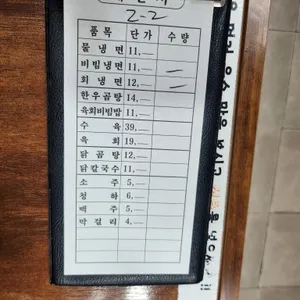 2-2
품목 단가 수량
물냉면 11,— 
비빔냉면 11,— 一
회냉면 12,— 一
한우곰탕 14,—
육회비빔밥 11,—
수육 39,—
육회 19,—
닭곰탕 12,—
닭칼국수 11,—
소주 5,—
청하 6,—
맥주 5,—
막걸리 4,—